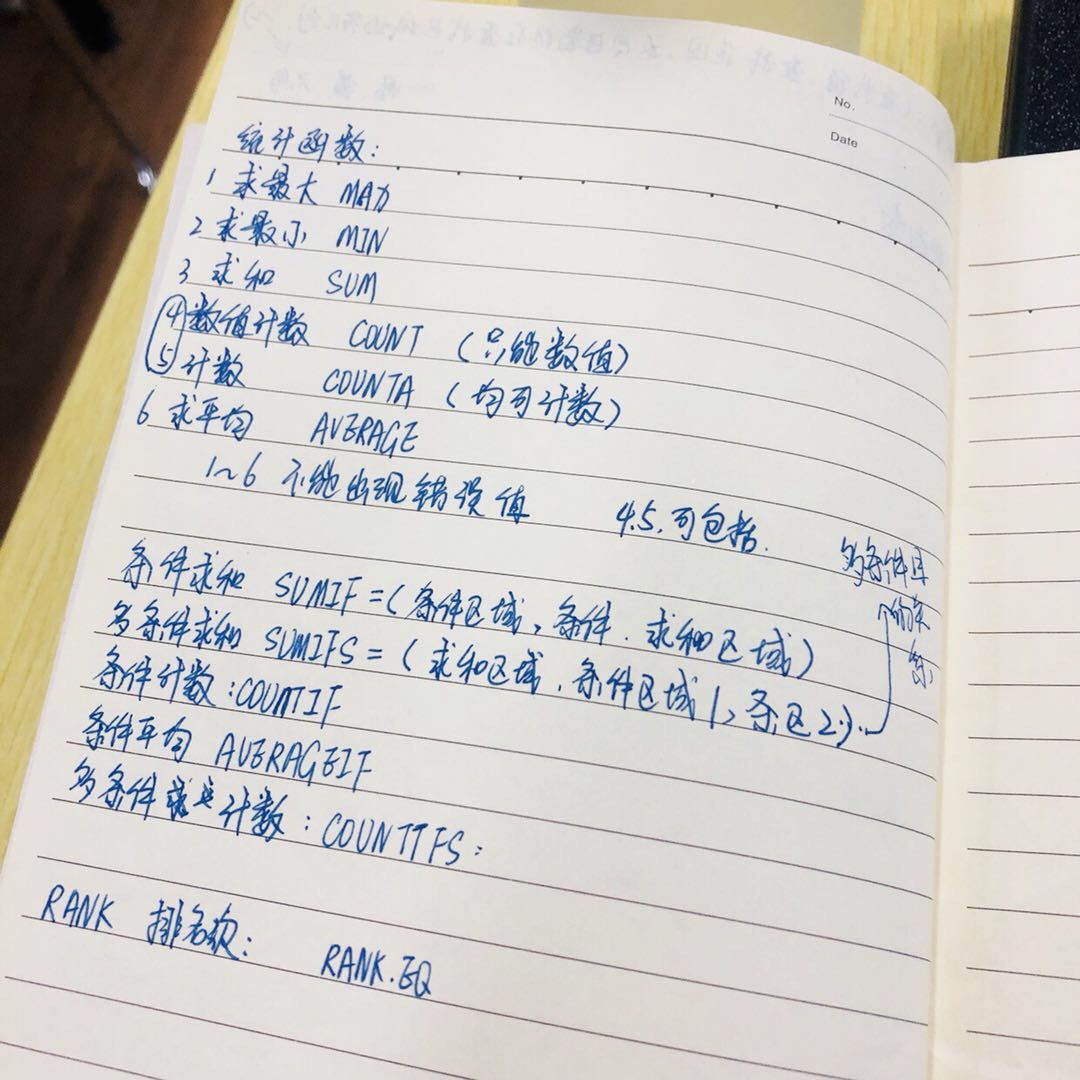 No.
Date
统计函数:
1 求最大 MAX
2 求最小 MIN
3 求和 SUM
④数值计数 COUNT (只能数值)
⑤计数 COUNTA (均可计数)
6 求平均 AVERAGE
1~6 不能出现错误值 4.5.可包括.
条件求和 SUMIF=(条件区域,条件.求和区域)
多条件求和 SUMIFS=(求和区域.条件区域1,条区2)..
多条件且
的关
条件计数:COUNTIF
条件平均 AVERAGEIF
多条件 计数:COUNTIFS:
RANK 排名次: RANK.EQ